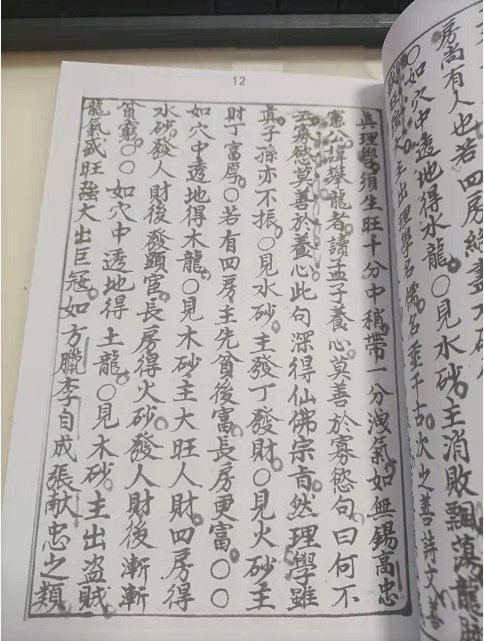 房尚有人也若四房絕
○如穴中透地得水龍○見水砂主消敗飄蕩龍
主出理學名儒名垂千古次之善詩文善
12
真理學須生旺十分中稍帶一分洩氣如無錫高忠
憲公諱攀龍者讀孟子養心莫善於寡慾句曰何不
云寡慾莫善於養心此句深得仙佛宗旨然理學雖
真子孫亦不振○見水砂主發丁發財○見火砂主
財丁富厚○若有四房主先貧後富長房更富○○
如穴中透地得木龍○見木砂主大旺人財四房得
水砂發人財後發顯宦長房得火砂發人財後漸漸
貧窮○○如穴中透地得土龍○見木砂主出盜賊
龍氣盛旺強大出巨寇如方臘李自成張献忠之類